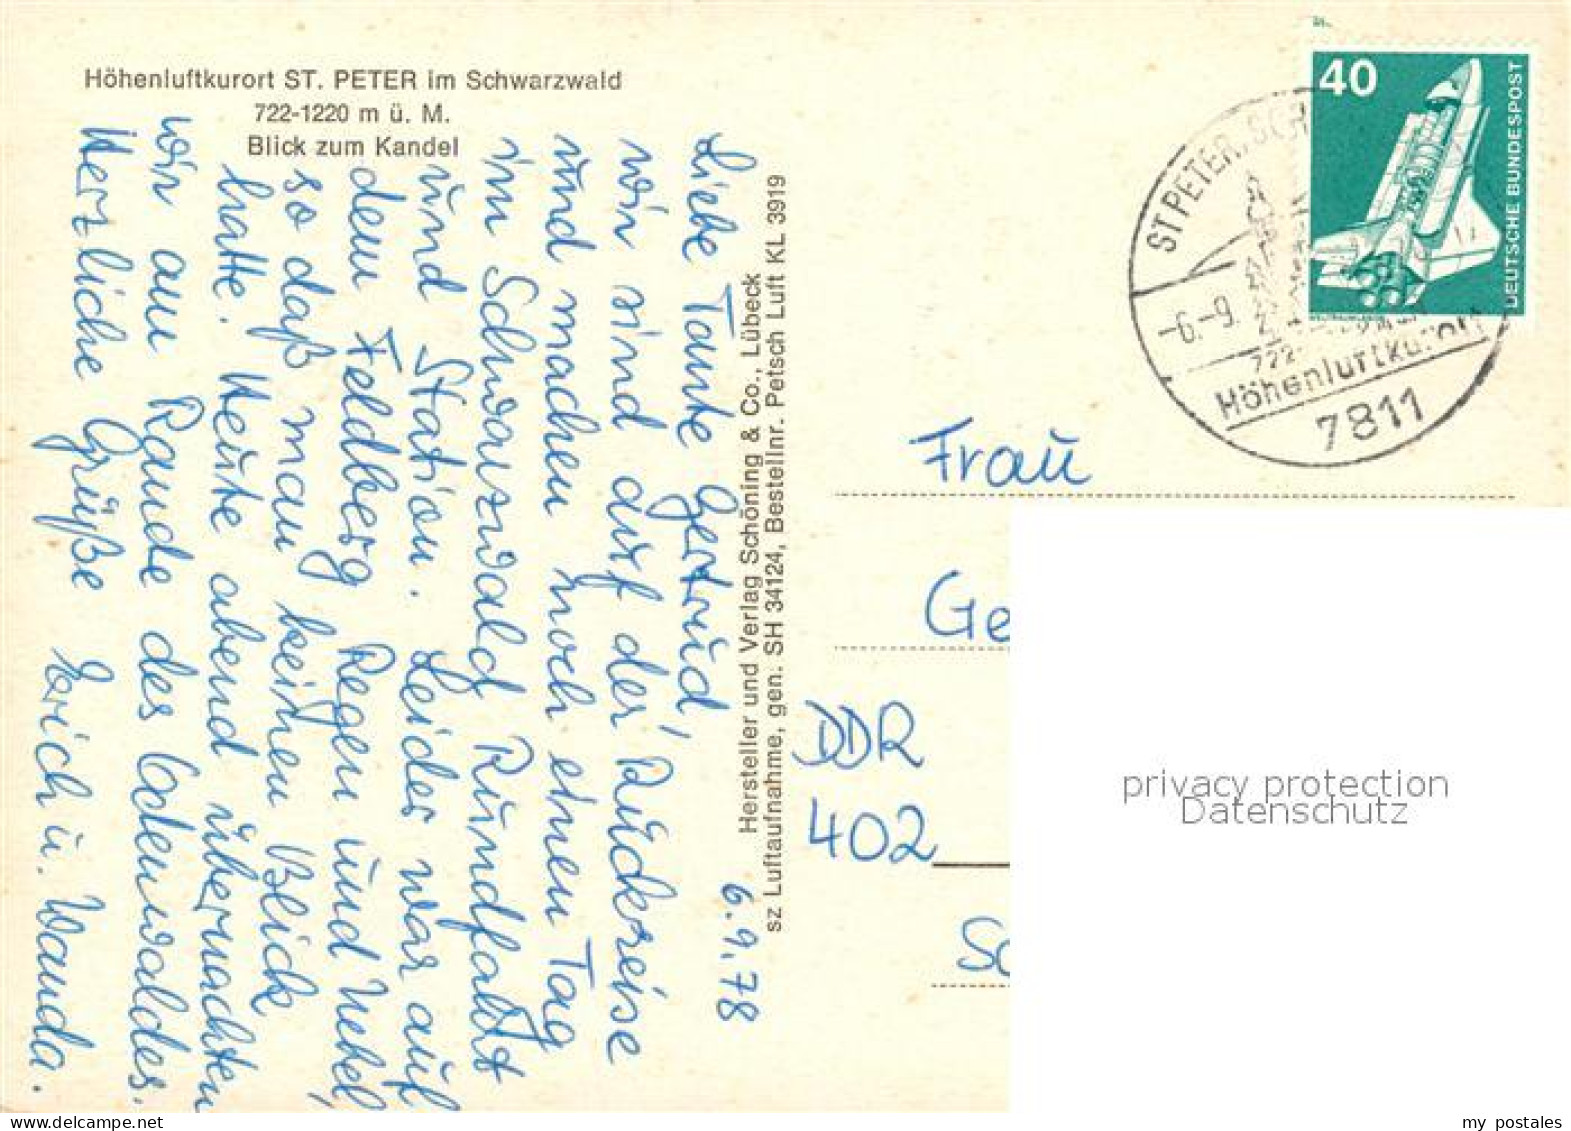 Höhenluftkurort ST. PETER im Schwarzwald
722-1220 m ü. M.
Blick zum Kandel
6.9.78
Liebe Tante Gertrud,
wir sind auf der Rückreise
und machen noch einen Tag
im Schwarzwald Rundfahrt
und Station. Leider war auf
dem Feldberg Regen und Nebel,
so daß man keinen Blick
hatte. Heute abend übernachten
wir am Rande des Odenwaldes.
Herzliche Grüße Erich u. Wanda.
Hersteller und Verlag Schöning & Co., Lübeck
sz Luftaufnahme, gen. SH 34124, Bestellnr. Petsch Luft KL 3919
40
DEUTSCHE BUNDESPOST
ST PETER, SCH
-6.-9.
722-
Höhenluftkurort
7811
Frau
Ge
DDR
402
privacy protection
Datenschutz
www.delcampe.net
my_postales